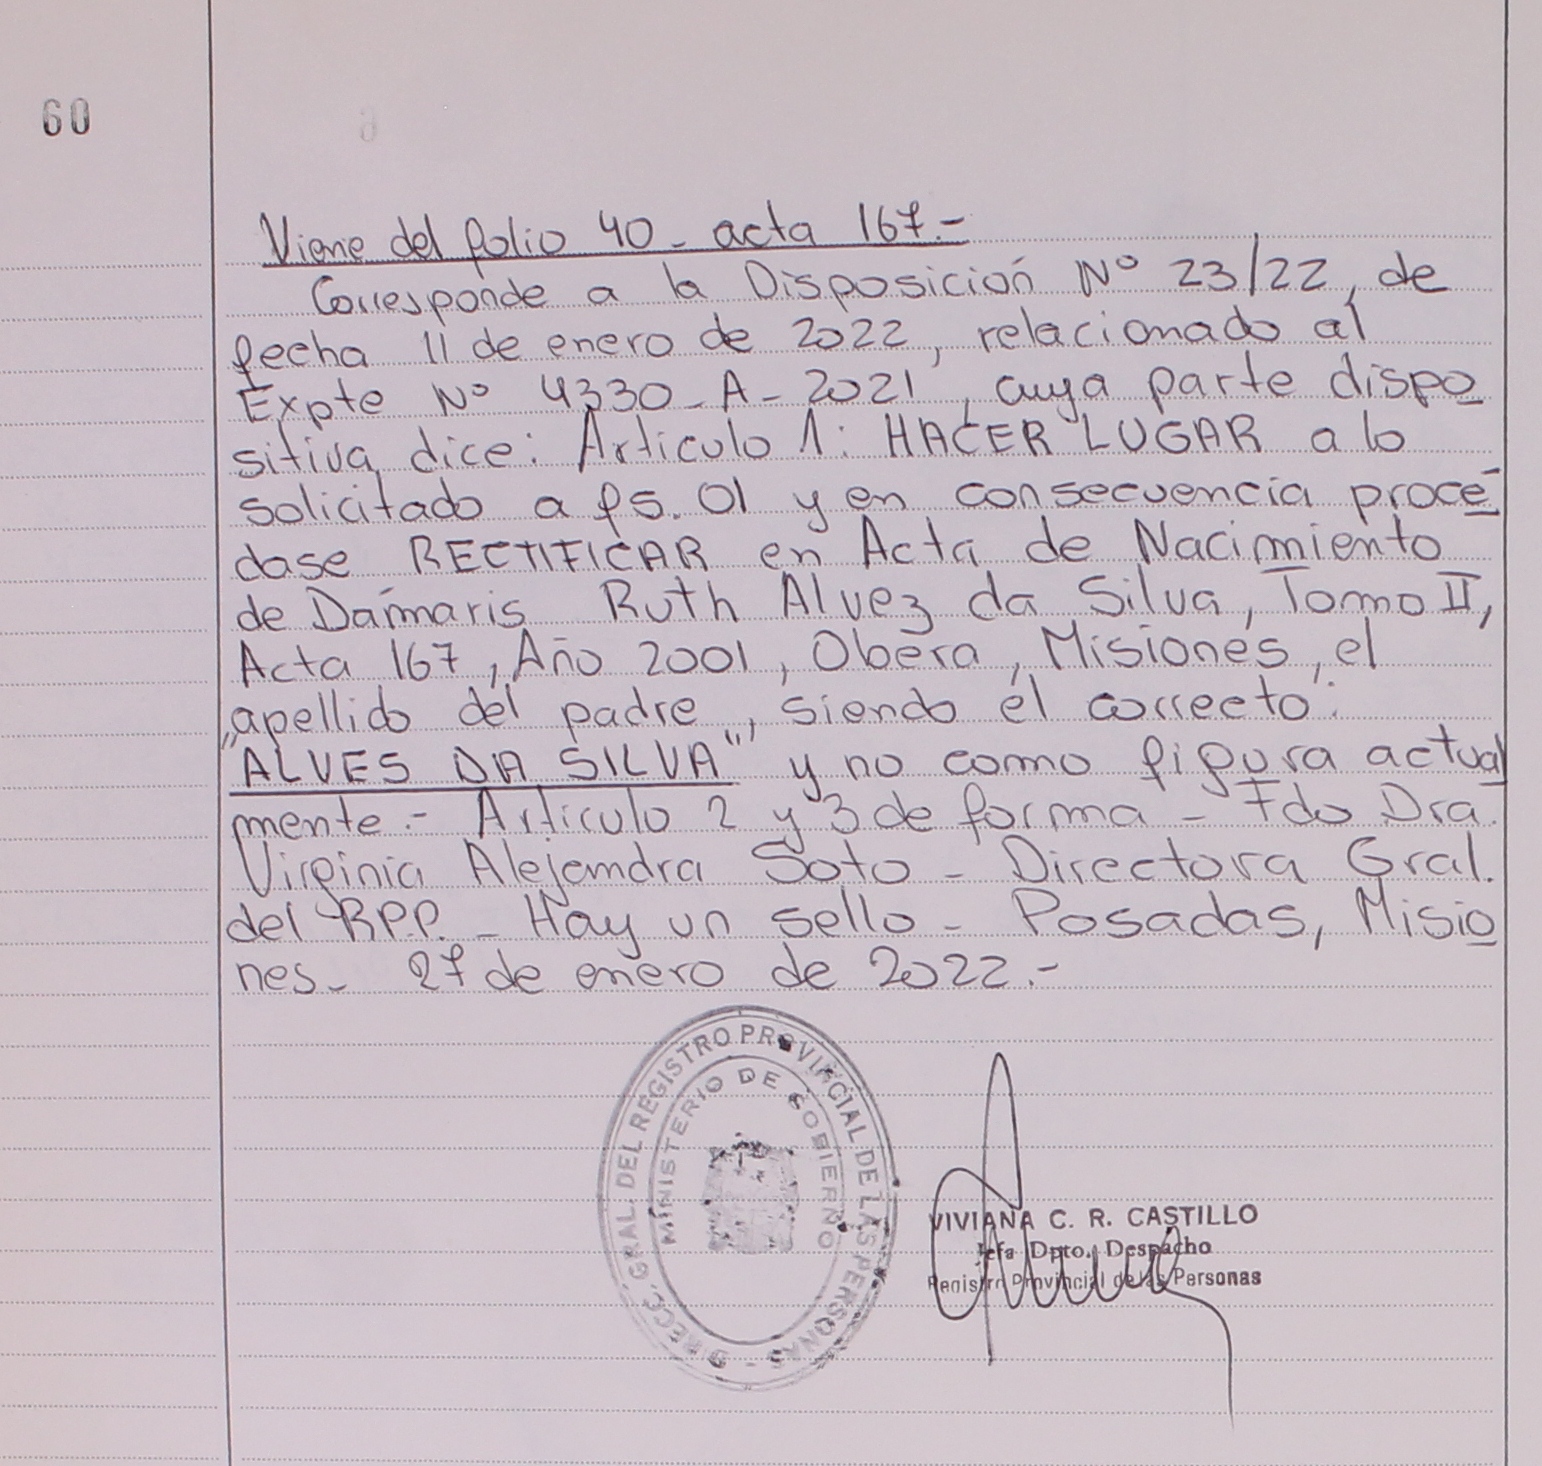 60
Viene del folio 40 - acta 167.-
Corresponde a la Disposición Nº 23/22, de
fecha 11 de enero de 2022, relacionado al
Expte Nº 4330-A-2021, cuya parte dispo
sitiva dice: Artículo 1: HACER LUGAR a lo
solicitado a fs. 01 y en consecuencia procé
dase RECTIFICAR en Acta de Nacimiento
de Damaris Ruth Alvez da Silva, Tomo II,
Acta 167, Año 2001, Oberá, Misiones, el
apellido del padre, siendo el correcto:
"ALVES DA SILVA" y no como figura actual
mente.- Artículo 2 y 3 de forma - Fdo Dra.
Virginia Alejandra Soto - Directora Gral.
del RPP. - Hay un sello - Posadas, Misio
nes - 27 de enero de 2022.-
DIRECC. GRAL. DEL REGISTRO PROVINCIAL DE LAS PERSONAS -
MINISTERIO DE GOBIERNO
VIVIANA C. R. CASTILLO
Jefa Dpto. Despacho
Registro Provincial de las Personas